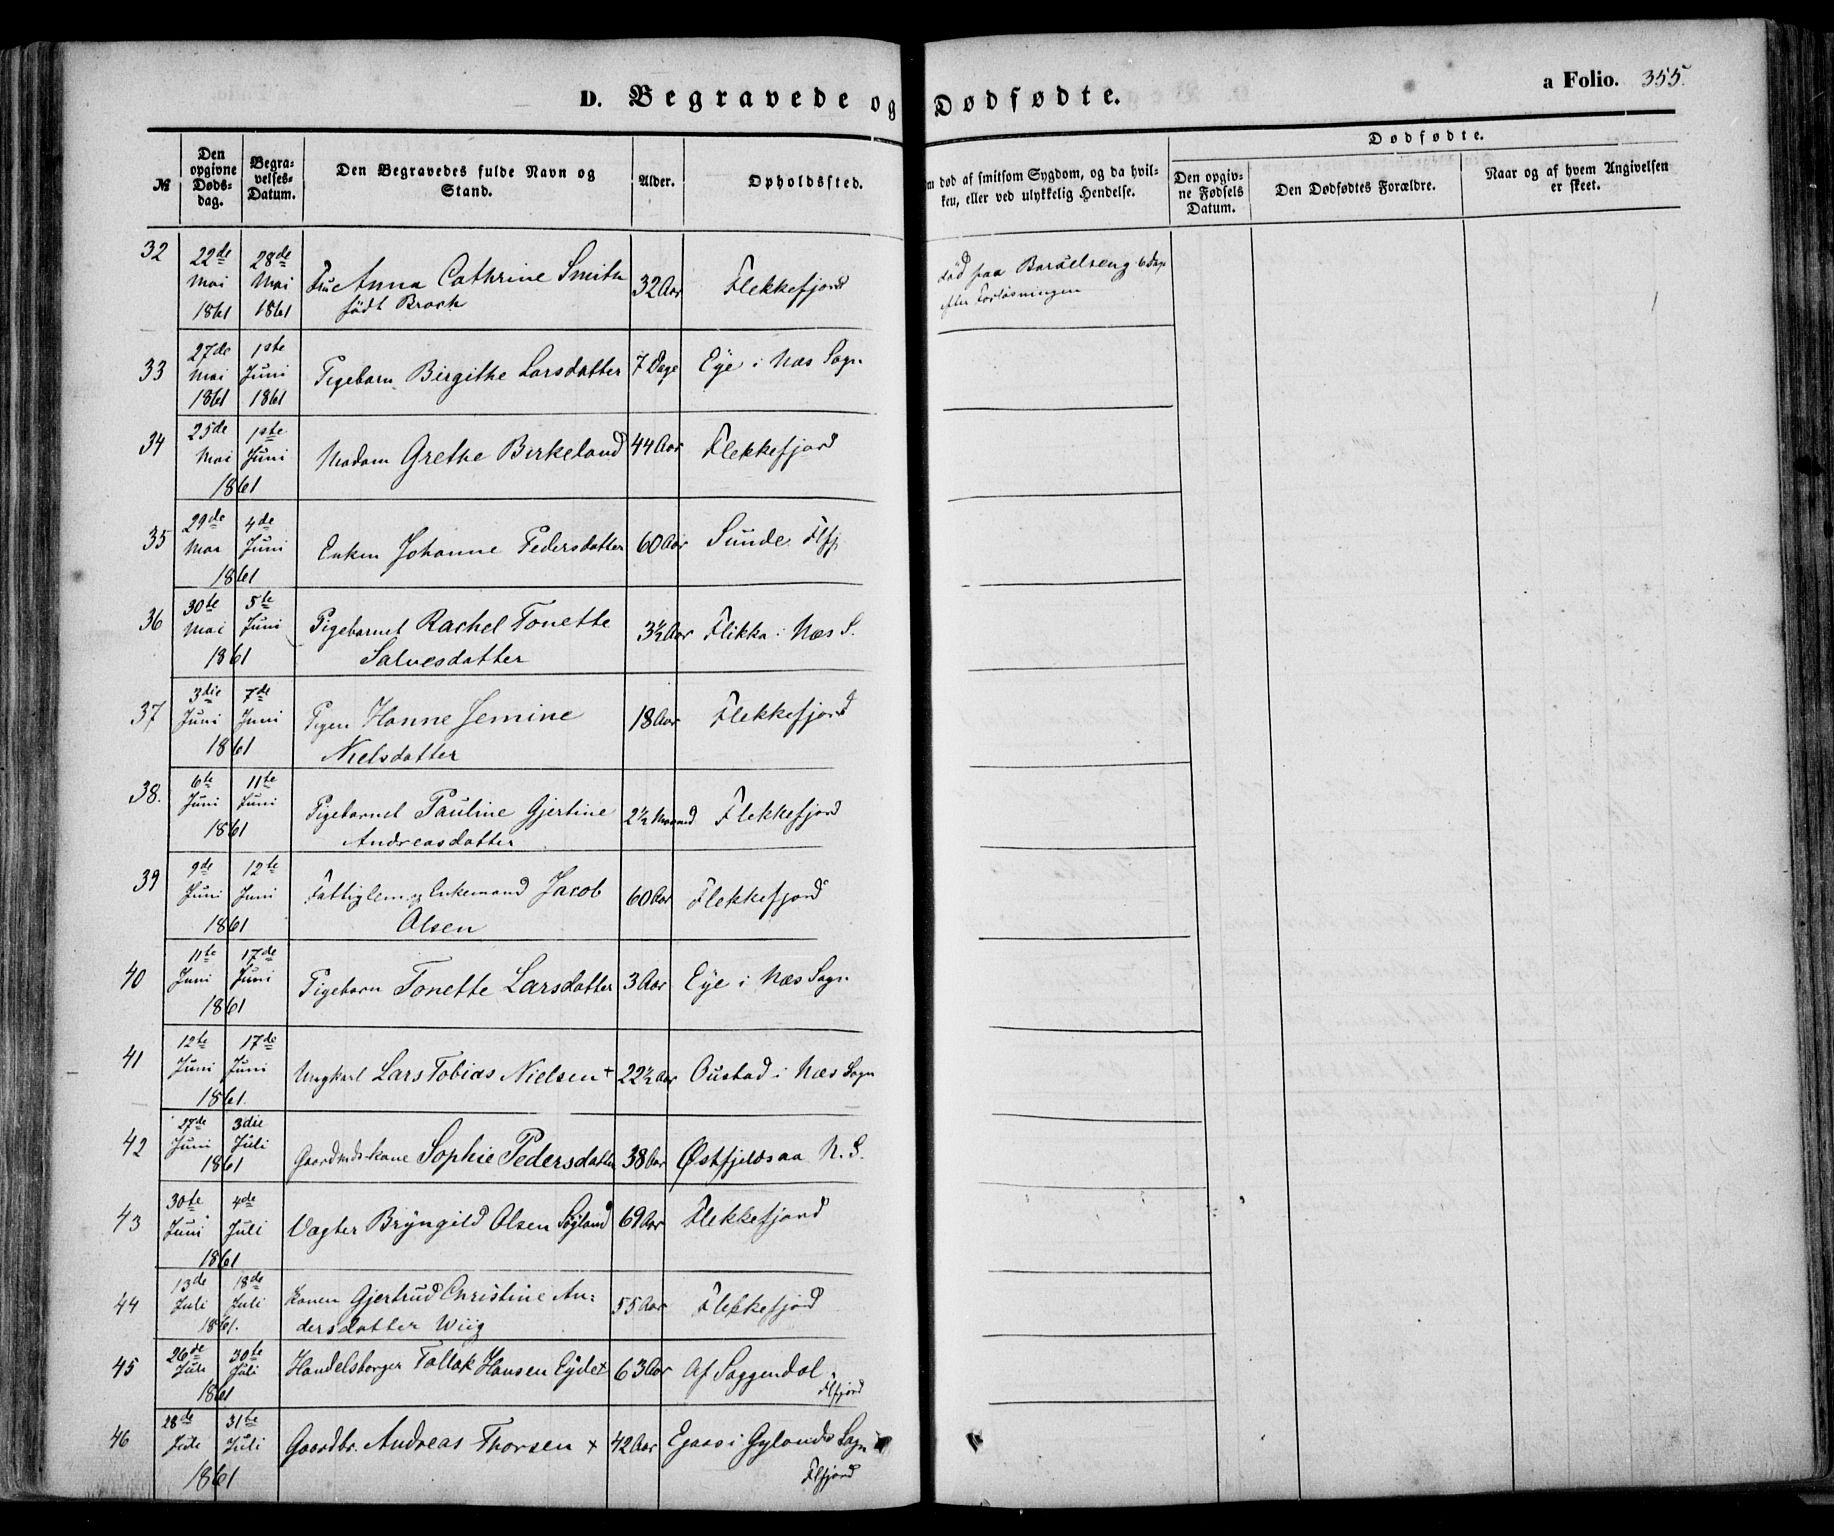 D. Begravede og Dødfødte.
a Folio. 355.
№
Den opgivne Døds-dag.
Begra-velses-Datum.
Den Begravedes fulde Navn og Stand.
Alder.
Opholdssted.
m død af smitsom Sygdom, og da hvil-
ken, eller ved ulykkelig Hendelse.
Dødfødte.
Den opgiv-ne Fødsels Datum.
Den Dødfødtes Forældre.
Naar og af hvem Angivelsen er skeet.
32 22de Mai 1861 28de Mai 1861 Frue Anna Cathrine Smith 32 Aar Flekkefjord død paa Barselseng 6 Dage
født Broch efter Forløsningen
33 27de Mai 1861 1ste Juni 1861 Pigebarn Birgithe Larsdatter 7 Dage Eye i Næs Sogn
34 25de Mai 1ste Juni 1861 Madam Grethe Birkeland 44 Aar Flekkefjord
35 29de Mai 4de Juni 1861 Enken Johanne Pedersdatter 60 Aar Sunde Flfj
36 30te Mai 5te Juni 1861 Pigebarnet Rachel Tonette 3½ Aar Flikka i Næs S.
Salvesdatter
37 3die Juni 7de Juni 1861 Pigen Hanne Jemine 18 Aar Flekkefjord
Nielsdatter
38. 6te Juni 11te Juni 1861 Pigebarnet Pauline Gjertine 2½ Maaned Flekkefjord
Andreasdatter
39 9de Juni 12te Juni 1861 Fattiglem og Enkemand Jacob 60 Aar Flekkefjord
Olsen
40 11te Juni 17de Juni 1861 Pigebarn Tonette Larsdatter 3 Aar Eye i Næs Sogn
41 12te Juni 17de Juni 1861. Ungkarl Lars Tobias Nielsen + 22½ Aar Oustad i Næs Sogn
42 27de Juni 3die Juli 1861 Gaardmdskone Sophie Pedersdatter 38 Aar Østfjeldsaa N. S.
43 30te Juni 4de Juli 1861 Vægter Bryngild Olsen Søyland 69 Aar Flekkefjord
44 13de Juli 18de Juli 1861. Konen Gjertrud Christine An:
dersdatter Wiig 55 Aar Flekkefjord
45 26de Juli 30te Juli 1861 Handelsborger Tallak Hansen Eyde + 63 Aar Af Saggendal
Flfjord
46 28de Juli 31te Juli 1861 Gaardbr. Andreas Thorsen + 42 Aar Egaas i Gylands Sogn
Flfjord